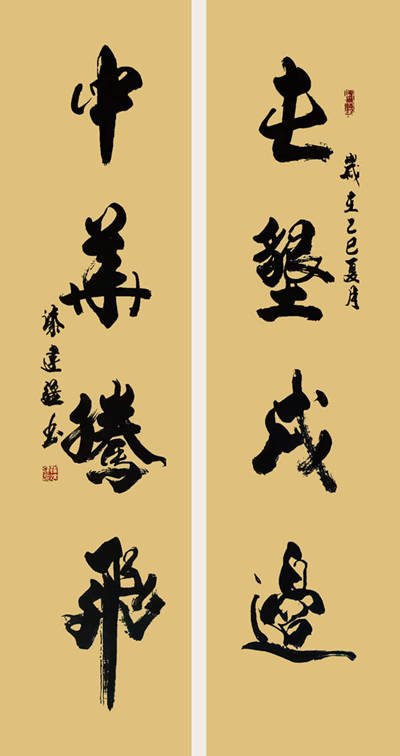 屯墾戍邊
歲在乙巳夏月
中華騰飛
建疆书